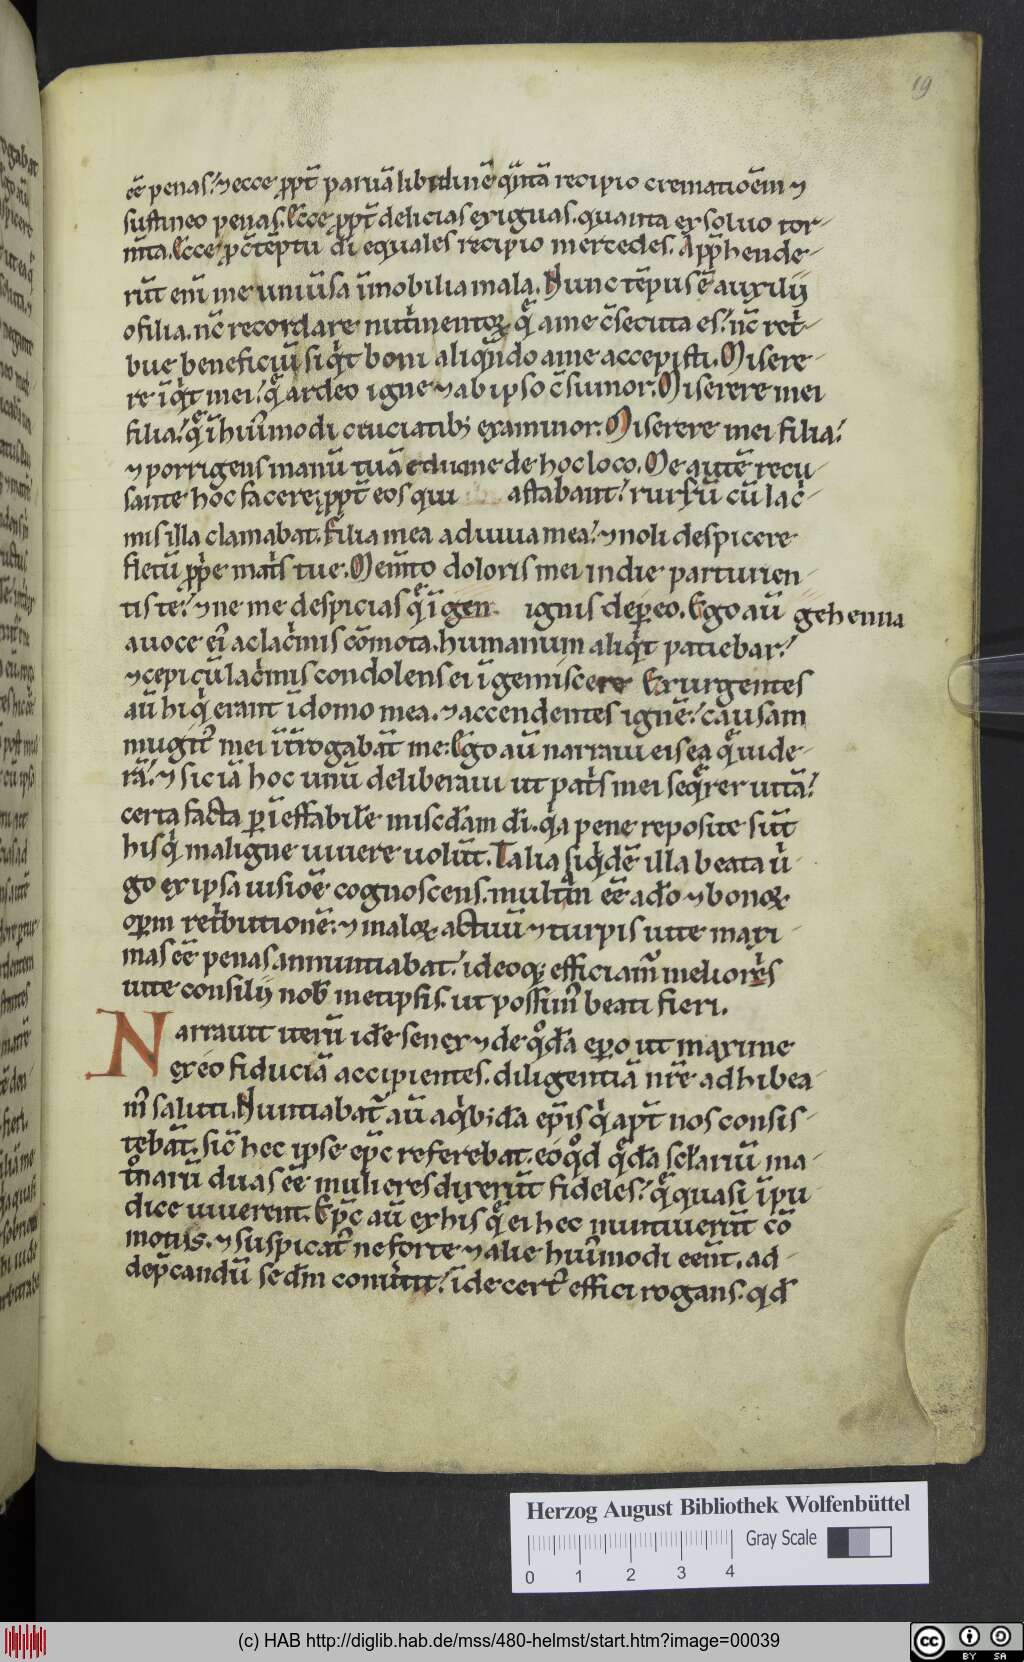 19
eē penas. ⁊ ecce ꝓpt̄ paruā libidinē qᷓntā recipio crematioēm ⁊
sustineo penas. Ecce ꝓpt̄ delicias exiguas. quanta exsoluo tor-
m̄ta. Ecce ꝓ c̄tēptu di equales recipio mercedes. App̄hende-
rūt eni me uniūsa īmobilia mala. Nunc tēpus ē auxilii
o filia. nc̄ recordare nutⁱmentoꝝ qᷓ a me c̄secuta es. nc̄ retⁱ-
bue beneficiū siqⁱt boni aliqᷓndo a me accepisti. Miserere-
re īqⁱt mei. qᷓ ardeo igne ⁊ ab ipso c̄sumor. Miserere mei
filia. qᷓ ī huīmodi cruciatibꝫ examinor. Miserere mei filia.
⁊ porrigens manū tuā educ me de hoc loco. Me autē recu-
sante hoc facere ꝓpt̄ eos qui astabant. rursū cū lacⁱ-
mis illa clamabat. Filia mea adiuua mea. ⁊ noli despicere
fletū ꝓpⁱe matⁱs tue. Mem̄to doloris mei in die parturien-
tis te. ⁊ ne me despicias qᷓ ī gen ignis deꝑeo. Ego aū gehenna
a uoce ei ac lacⁱmis cōmota. humanum aliqⁱt patiebar.
⁊ cepi cū lacⁱmis condolens ei īgemiscere Exurgentes
aū hi qⁱ erant ī domo mea. ⁊ accendentes ignē. causam
mugit᷒ mei īt̄rogabāt me. Ego aū narraui eis ea qᷓ uide-
rā. ⁊ sic iā hoc unū deliberaui ut patⁱs mei seqᷓrer uitā.
certa facta ꝑ īeffabilē misc̄dam di. qⁱa pene reposite sūt
his qⁱ maligne uiuere uolūt. Talia siqⁱdē illa beata uⁱ-
go ex ipsa uisiōe cognoscens. multā eē a dō ⁊ bonoꝝ
oꝑm retⁱbutionē. ⁊ maloꝝ actuū ⁊ turpis uite maxi-
mas eē penas annuntiabat. ideoqꝫ efficiam᷒ meliores
uite consilii nob̄ metipsis. ut possim᷒ beati fieri.
Narrauit iterū idē senex ⁊ de qᷓda ep̄o ut maxime
ex eo fiduciā accipientes. diligentiā nr̄e adhibea-
m᷒ saluti. Nuntiabat᷒ aū a qⁱbꝫdā ep̄is qⁱ apt̄ nos consis-
tebāt. sic̄ hec ipse ep̄c referebat. eo qᷓd qᷓda sc̄lariū ma-
tᷓnarū duas eē mulieres dixerūt fideles. qᷓ quasi īpu-
dice uiuerent. Ep̄c aū ex his qᷓ ei hec nuntiuerūt cō
motus. ⁊ suspicat᷒ ne forte ⁊ alie huīmodi eent. ad-
dep̄candū se dm̄ conūtit. īde cert᷒ effici rogans. qd̄
Herzog August Bibliothek Wolfenbüttel
Gray Scale
0 1 2 3 4
(c) HAB http://diglib.hab.de/mss/480-helmst/start.htm?image=00039
cc BY SA